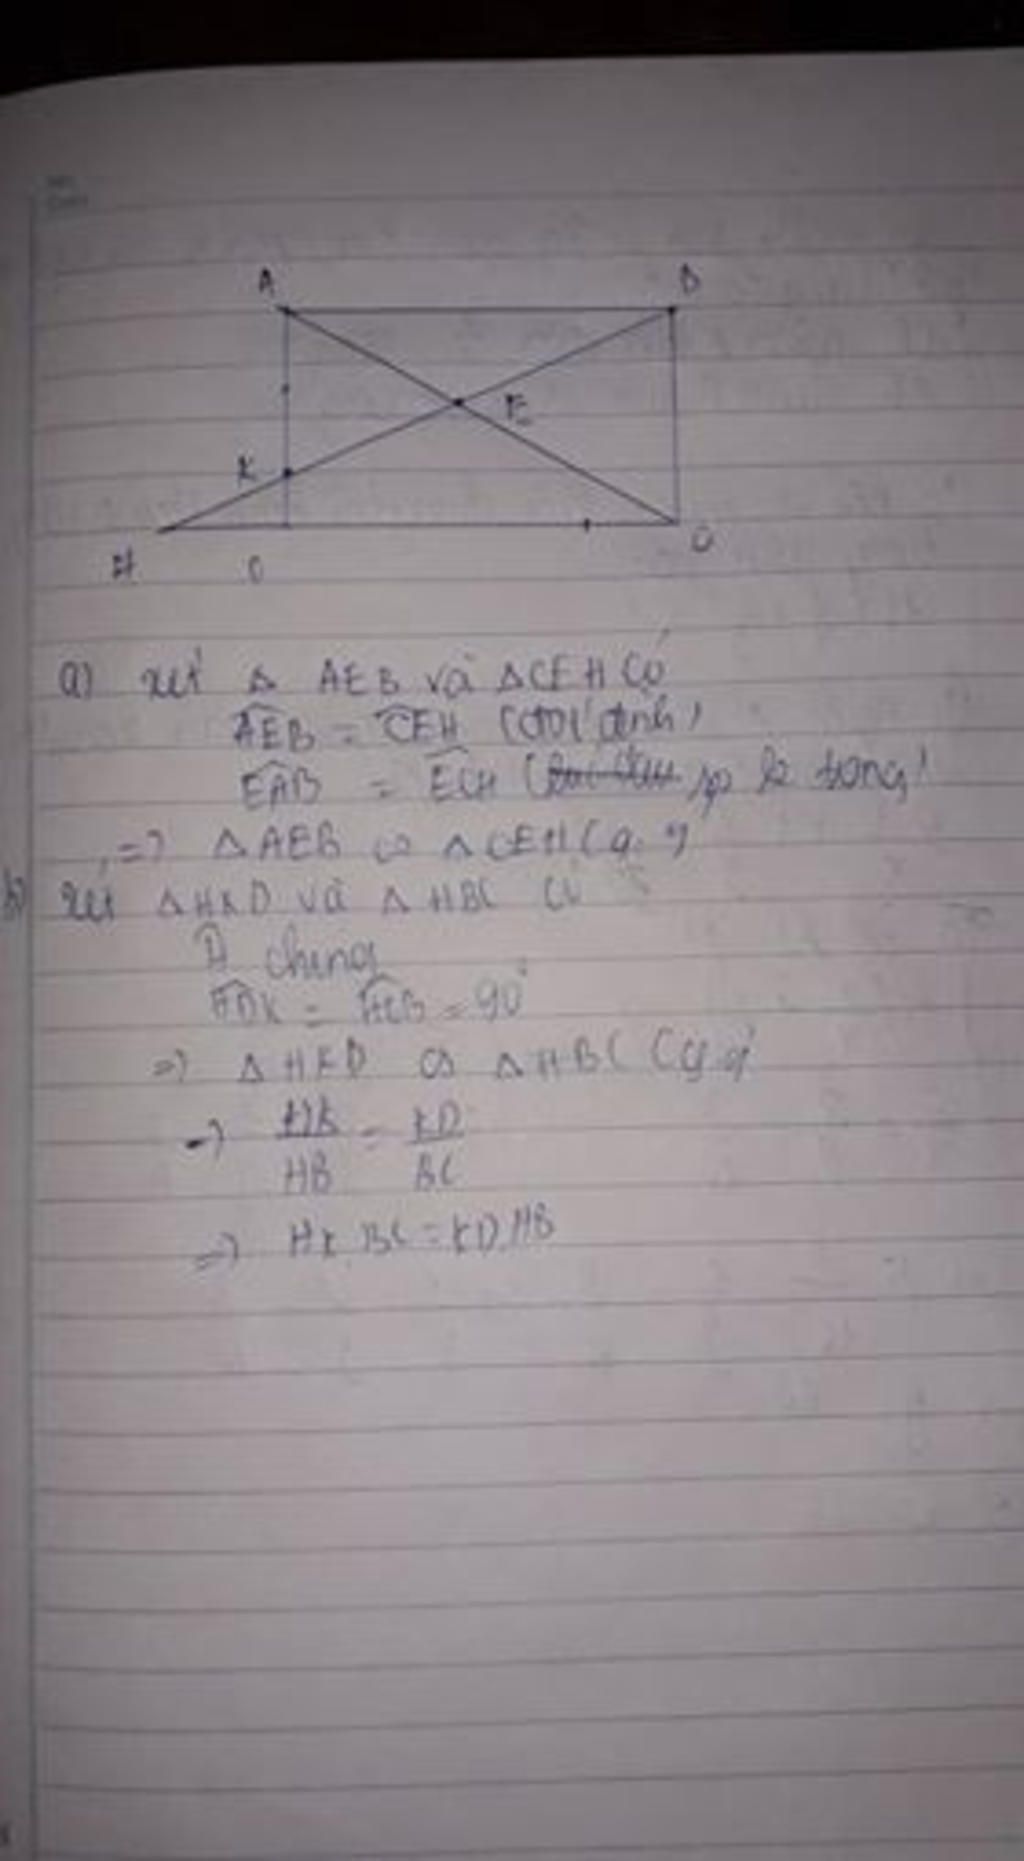 A B
E
K
H C
a) xét Δ AEB và ΔCEH có
AEB = CEH (đối đỉnh)
EAB = ECH ( so le trong)
=> Δ AEB ∽ Δ CEH (g.g)
b) xét Δ HKD và Δ HBC có
H chung
HDK = HCB = 90°
=> Δ HKD ∽ Δ HBC (g.g)
=> HK/HB = KD/BC
=> HK.BC = KD.HB